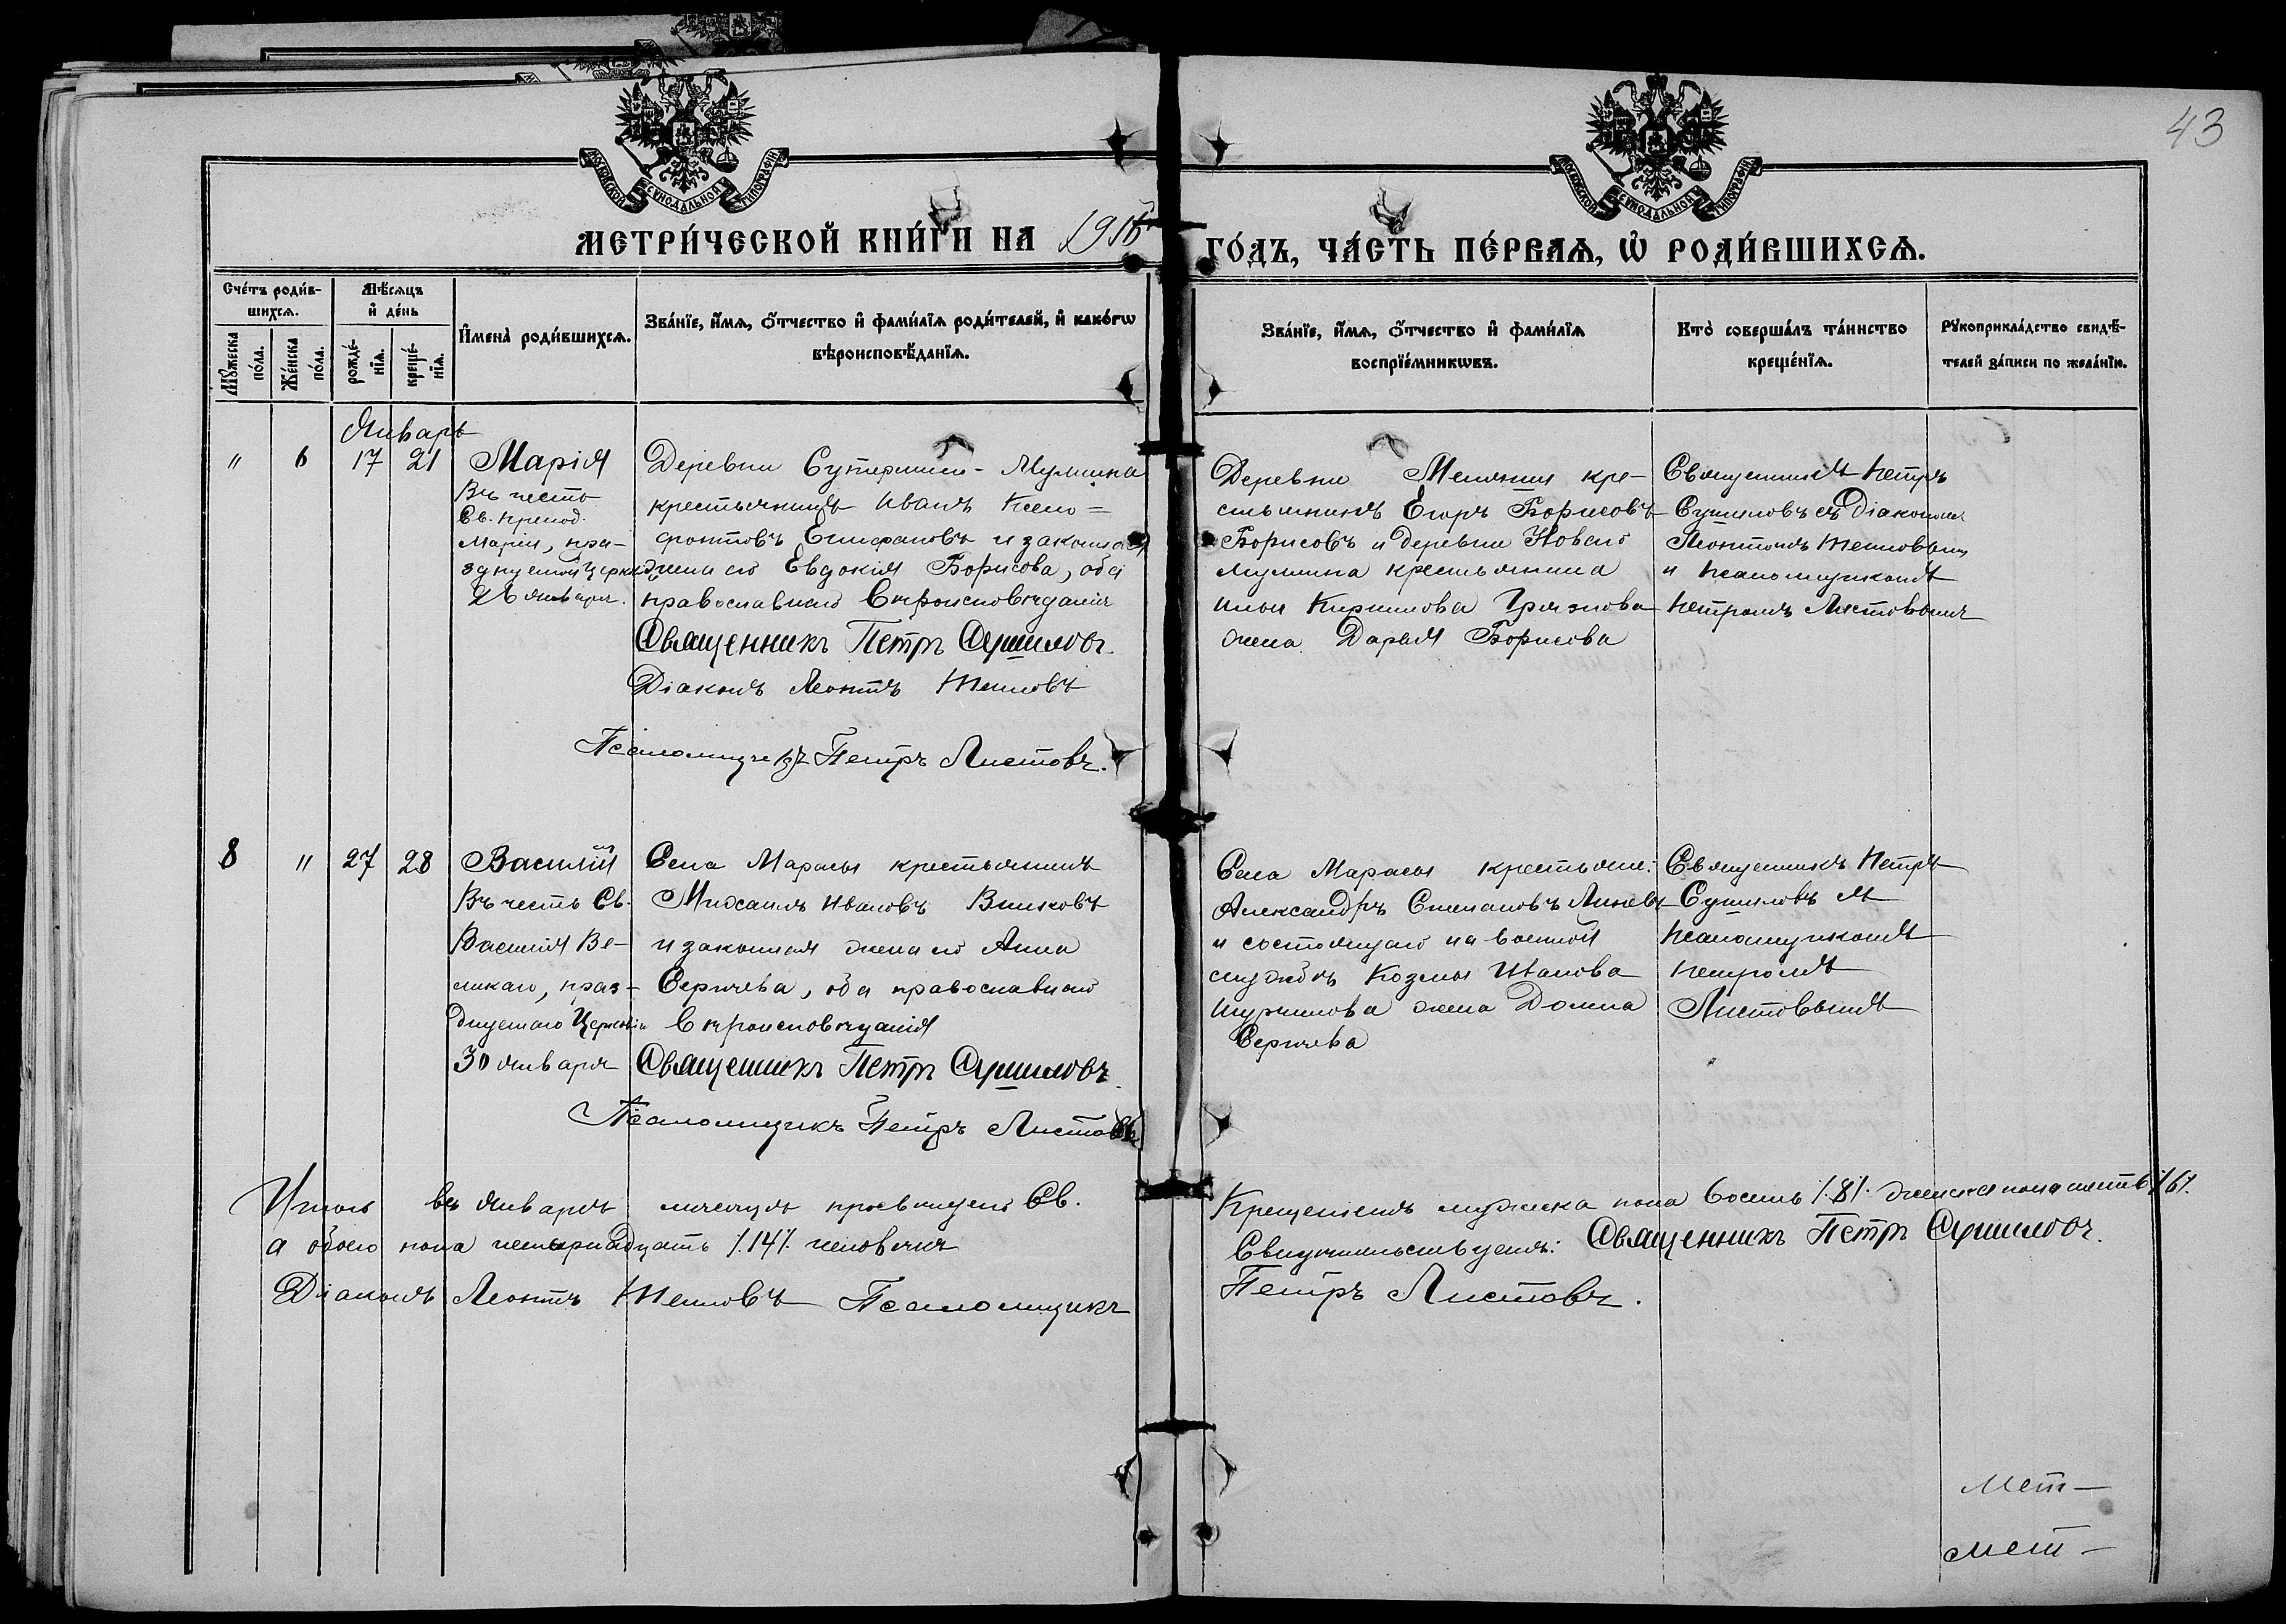 43
МОСКОВСКОЙ СУНОДАЛЬНОЙ ТИПОГРАФІИ
МОСКОВСКОЙ СУНОДАЛЬНОЙ ТИПОГРАФІИ
МЕТРИ́ЧЕСКОЙ КНИ́ГИ НА 191
ГО́ДЪ, ЧА́СТЬ ПЕ́РВАѦ, Ѽ РОДИ́ВШИХСѦ.
Сче́тъ роди́в-
шихсѧ.
Мꙋжеска по́ла.
Же́нска по́ла.
Мѣ́сѧцъ
и҆ де́нь
рожде́-
нїѧ.
креще́-
нїѧ.
И҆мена̀ роди́вшихсѧ.
Зва́нїе, и҆́мѧ, ѻ҆́тчество и҆ фами́лїѧ роди́телей, и҆ како́гѡ
вѣроисповѣ́данїѧ.
Зва́нїе, и҆́мѧ, ѻ҆́тчество и҆ фами́лїѧ
воспрїе́мникѡвъ.
Кто̀ соверша́лъ та́инство
креще́нїѧ.
Рꙋкоприкла́дство свидѣ́-
телей за́писи по жела́нїю.
Январь
" 6 17 21
Марія
Въ честь
Св. препод.
Маріи, пра-
зднуемой Церков.
26 января.
Деревни Мулкина
крестьянинъ Иванъ Ксено=
фонтовъ Епифановъ и законная
жена его Евдокія Борисова, оба
православнаго вѣроисповѣданія
Священникъ Петръ Сушиловъ
Діаконъ Леонтъ Тепловъ
Псаломщикъ Петръ Листовъ.
Деревни кре-
стьянинъ Егоръ Борисовъ
Борисовъ и деревни Новаго
Мулкина крестьянина
Ильи Кирилова Грязнова
жена Дарья Борисова
Священникъ Петръ
Сушиловъ съ Діакономъ
Леонтомъ Тепловымъ
и псаломщикомъ
Петромъ Листовымъ
8 " 27 28
Василій
Въ честь Св.
Василія Ве-
ликаго, праз-
днуемаго Церковію
30 января
Села Марасы крестьянинъ
Михаилъ Ивановъ Вилковъ
и законная жена его Анна
Сергѣева, оба православнаго
вѣроисповѣданія
Священникъ Петръ Сушиловъ
Псаломщикъ Петръ Листовъ
Села Марасы крестьяне:
Александръ Степановъ
и состоящаго на военной
службѣ Козмы Иванова
жена Домна
Сергѣева
Священникъ Петръ
Сушиловъ съ
псаломщикомъ
Петромъ
Листовымъ
Итого въ январѣ мѣсяцѣ просвѣщено Св.
Крещеніемъ мужеска пола восемь /8/. женска пола шесть /6/.
а обоего пола четырнадцать /14/. человѣкъ
Свидѣтельствуемъ: Священникъ Петръ Сушиловъ.
Діаконъ Леонтъ Тепловъ Псаломщикъ
Петръ Листовъ.
Мет-
Мет-